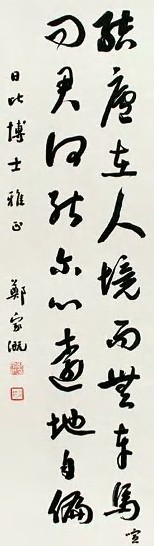 結廬在人境而無車馬宣
问君何能尔心遠地自偏
日比博士雅正
鄭家溉